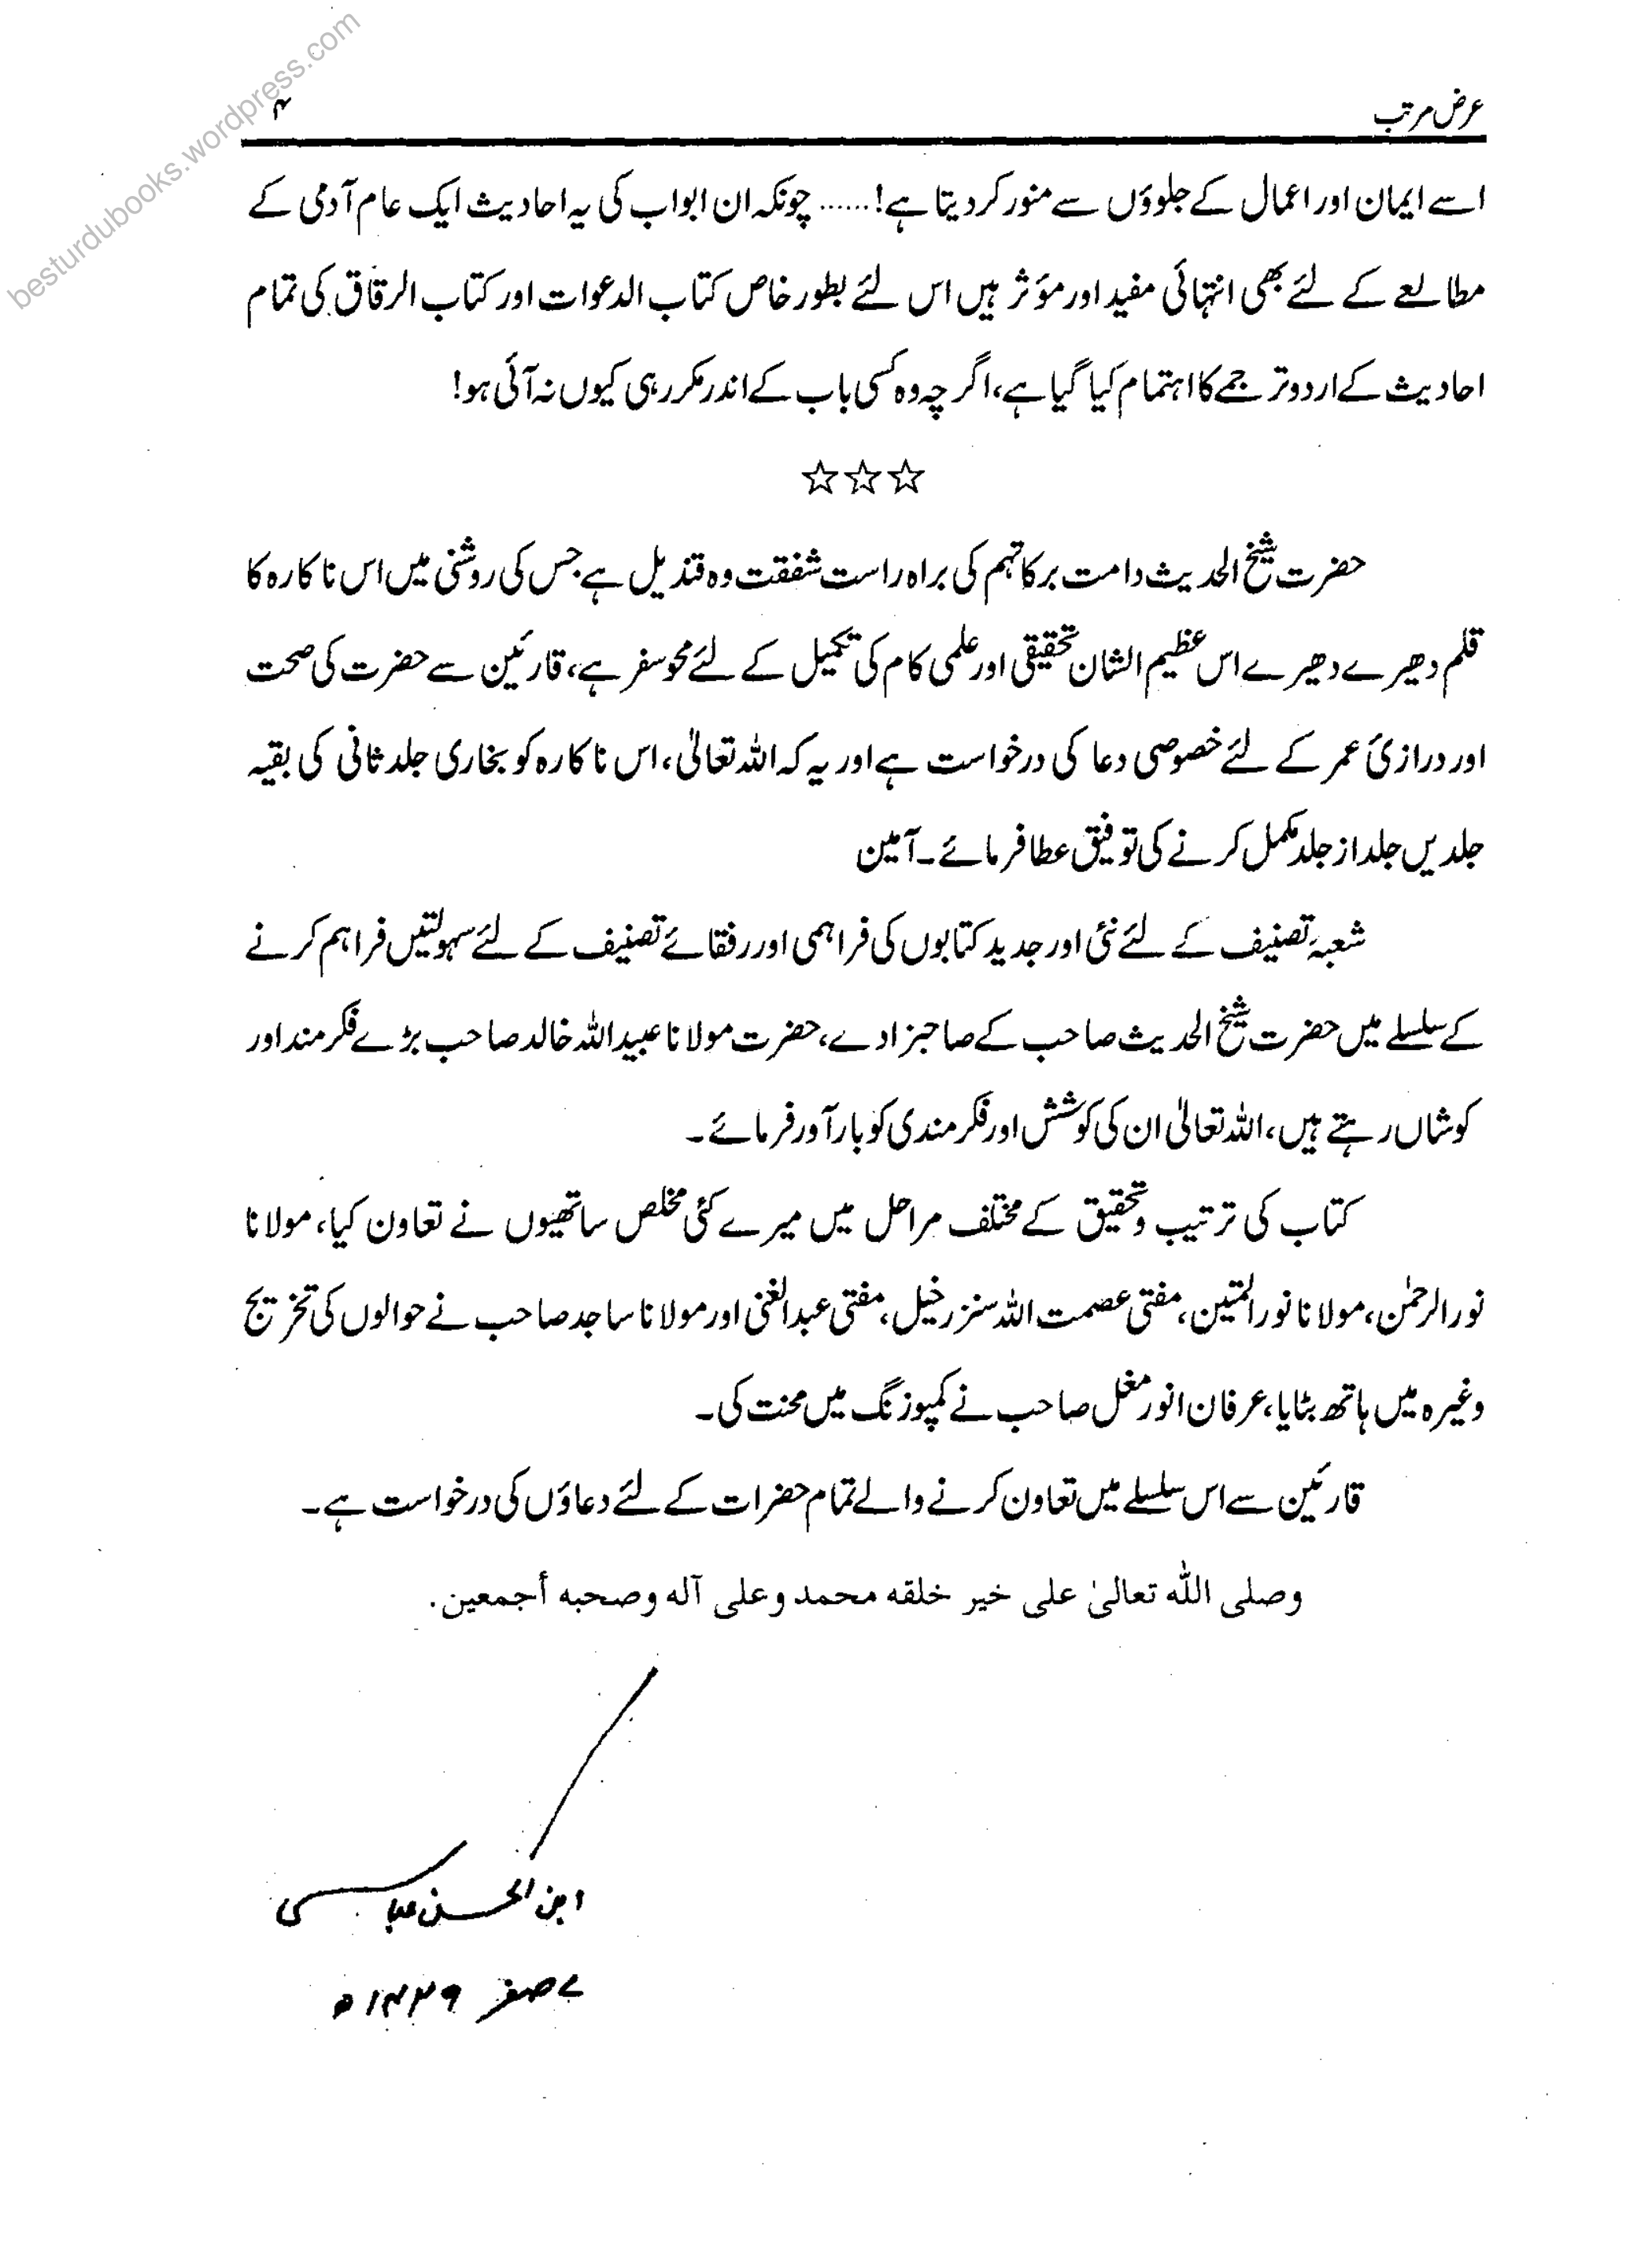 besturdubooks.wordpress.com
عرض مرتب ۴
اسے ایمان اور اعمال کے جلوؤں سے منور کر دیتا ہے! ...... چونکہ ان ابواب کی یہ احادیث ایک عام آدمی کے
مطالعے کے لئے بھی انتہائی مفید اور مؤثر ہیں اس لئے بطور خاص کتاب الدعوات اور کتاب الرقاق کی تمام
احادیث کے اردو ترجمے کا اہتمام کیا گیا ہے، اگر چہ وہ کسی باب کے اندر مکرر ہی کیوں نہ آئی ہو!
☆☆☆
حضرت شیخ الحدیث دامت برکاتہم کی براہ راست شفقت وہ قندیل ہے جس کی روشنی میں اس ناکارہ کا
قلم دھیرے دھیرے اس عظیم الشان تحقیقی اور علمی کام کی تکمیل کے لئے محو سفر ہے، قارئین سے حضرت کی صحت
اور درازیٔ عمر کے لئے خصوصی دعا کی درخواست ہے اور یہ کہ اللہ تعالیٰ، اس ناکارہ کو بخاری جلد ثانی کی بقیہ
جلدیں جلد از جلد مکمل کرنے کی توفیق عطا فرمائے۔ آمین
شعبۂ تصنیف کے لئے نئی اور جدید کتابوں کی فراہمی اور رفقائے تصنیف کے لئے سہولتیں فراہم کرنے
کے سلسلے میں حضرت شیخ الحدیث صاحب کے صاحبزادے، حضرت مولانا عبید اللہ خالد صاحب بڑے فکر مند اور
کوشاں رہتے ہیں، اللہ تعالیٰ ان کی کوشش اور فکر مندی کو بار آور فرمائے۔
کتاب کی ترتیب و تحقیق کے مختلف مراحل میں میرے کئی مخلص ساتھیوں نے تعاون کیا، مولانا
نور الرحمٰن، مولانا نور المتین، مفتی عصمت اللہ سنزرخیل، مفتی عبد الغنی اور مولانا ساجد صاحب نے حوالوں کی تخریج
وغیرہ میں ہاتھ بٹایا، عرفان انور مغل صاحب نے کمپوزنگ میں محنت کی۔
قارئین سے اس سلسلے میں تعاون کرنے والے تمام حضرات کے لئے دعاؤں کی درخواست ہے۔
وصلی اللّٰہ تعالیٰ علی خیر خلقه محمد وعلی آله وصحبه أجمعین.
ابن الحسن عباسی
۷ صفر ۱۴۲۹ھ